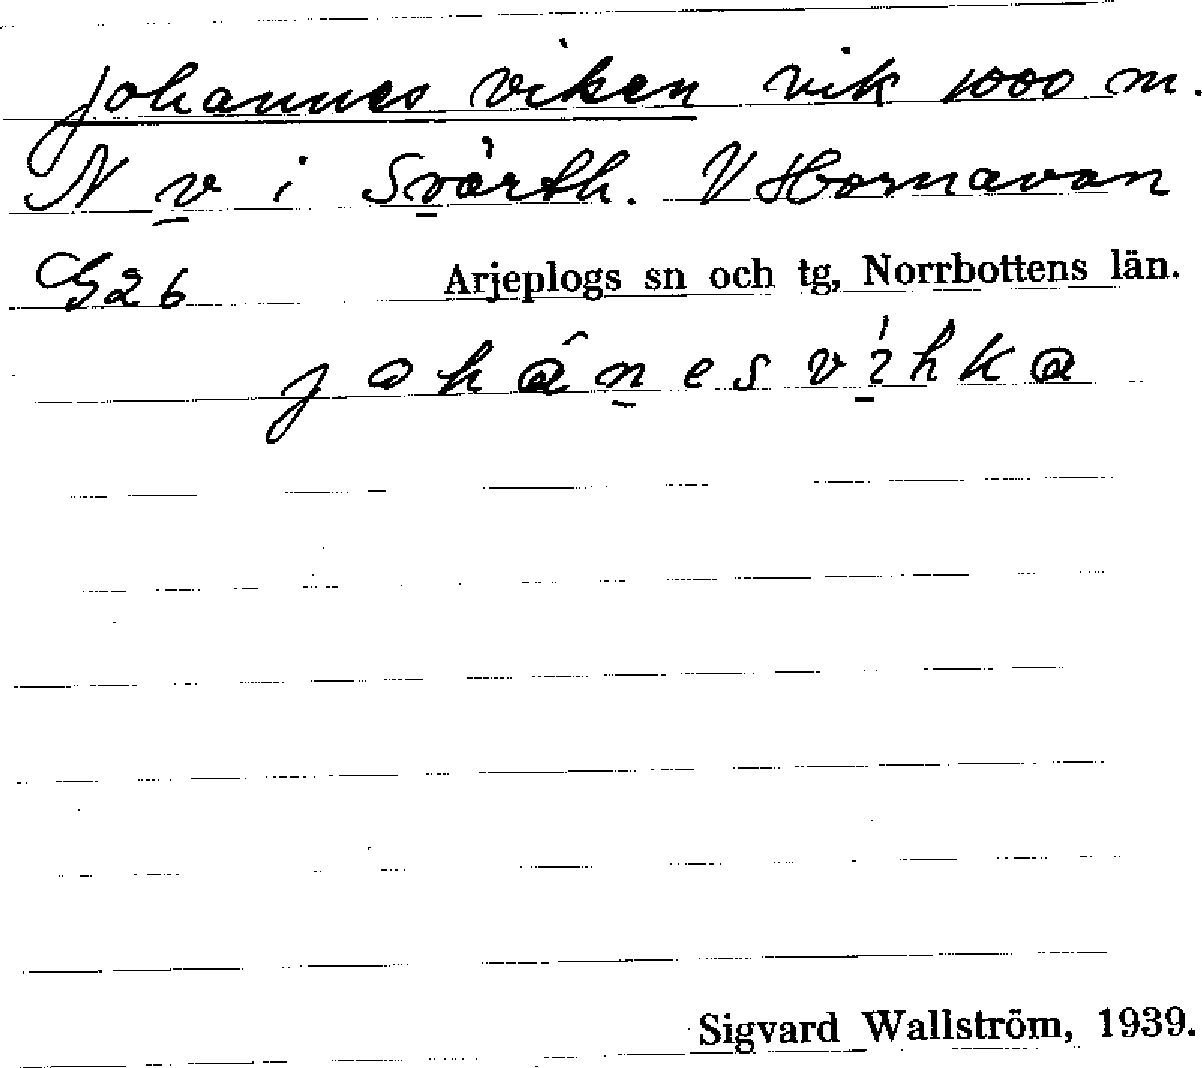 Johannesviken vik 1000 m.
N v i Svärth. V Hornavan
G26
Arjeplogs sn och tg, Norrbottens län.
Sigvard Wallström, 1939.